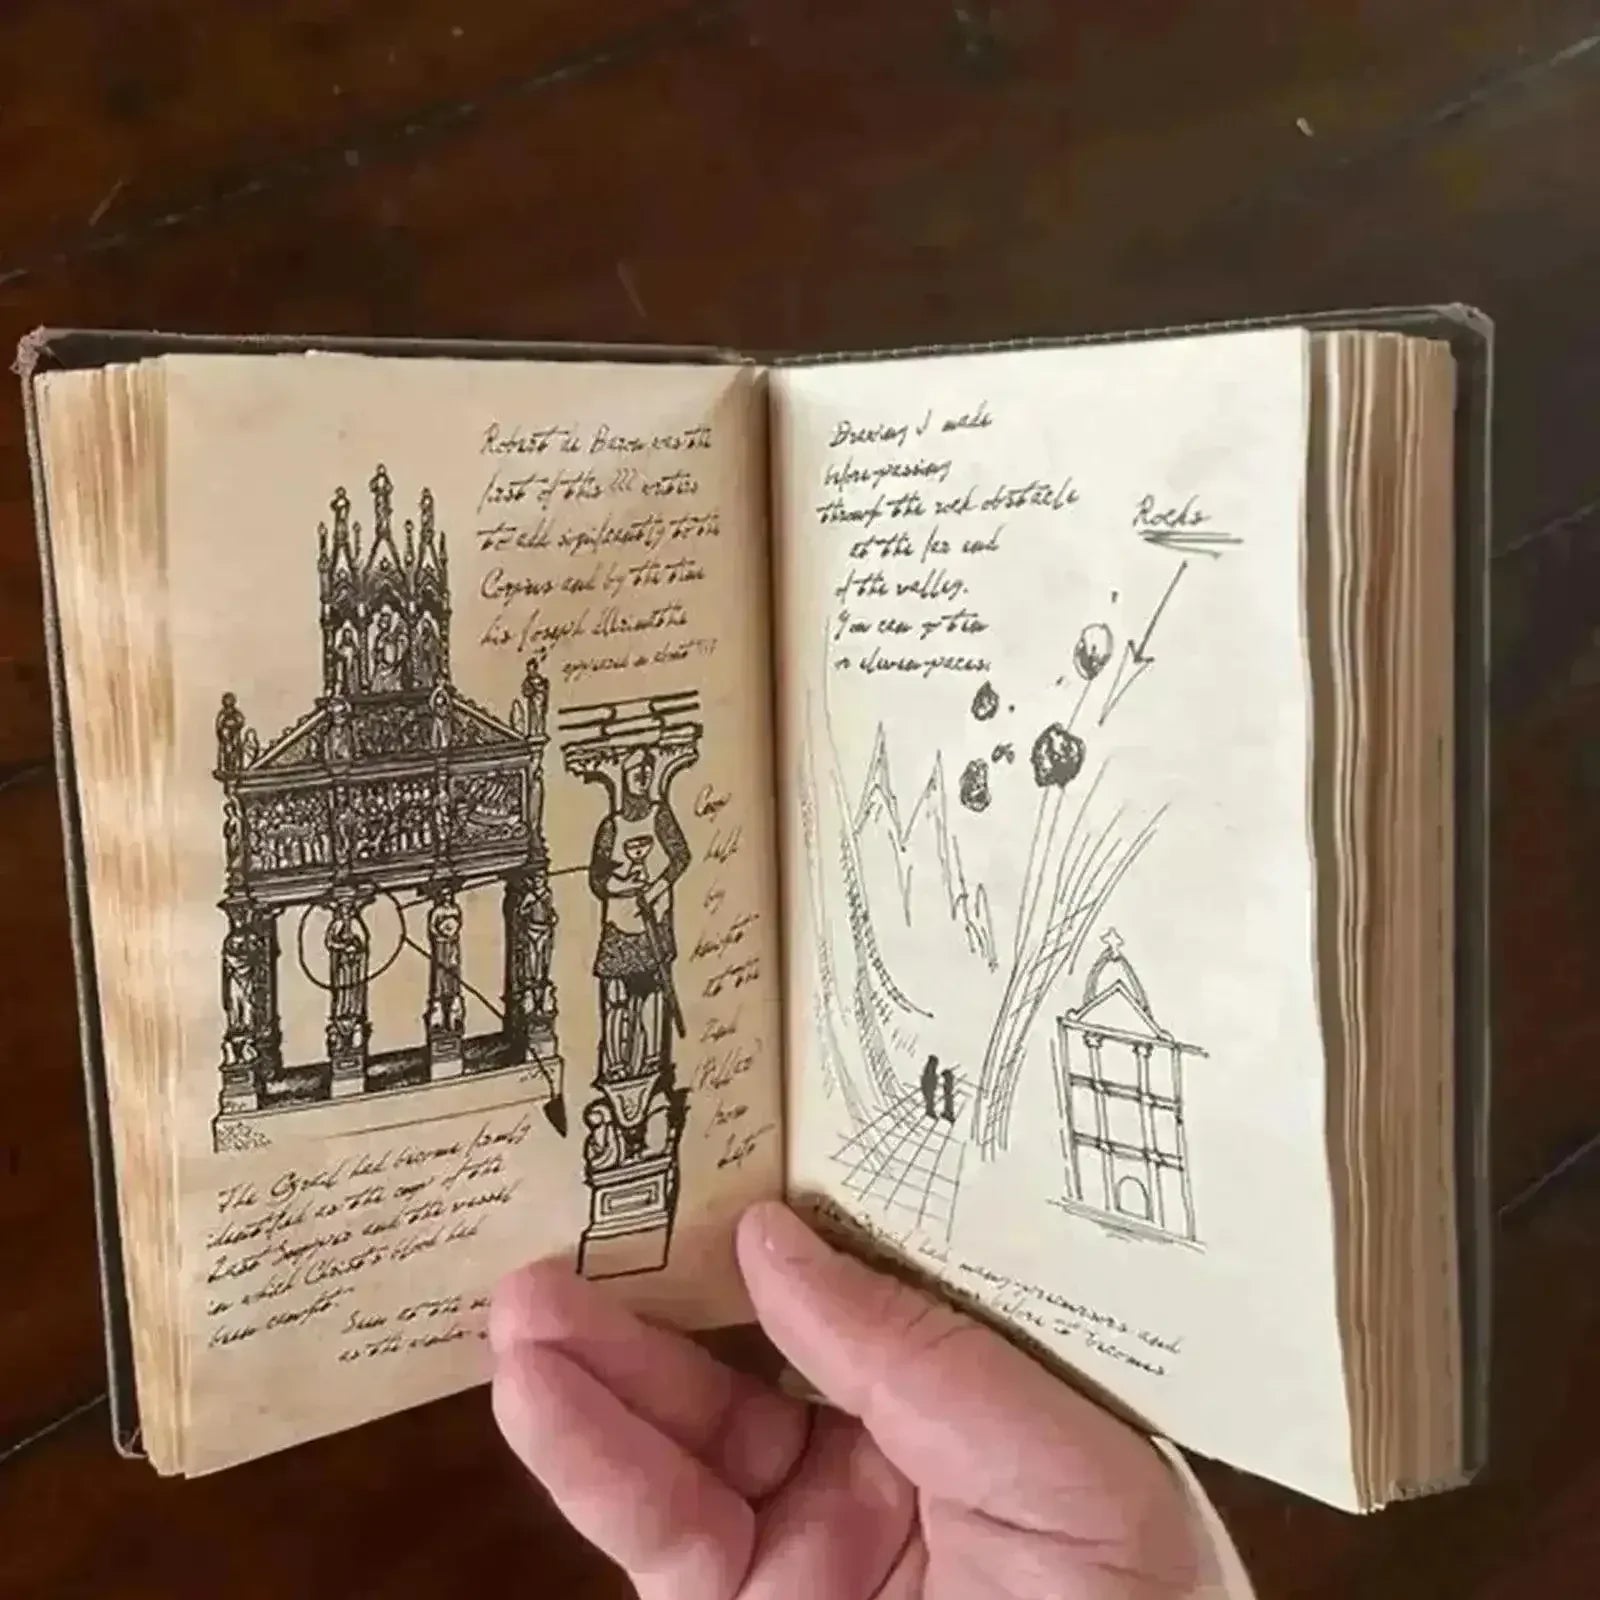 Robert de Boron was the
first of this ??? writers
to add significantly to the
Corpus and by the time
his Joseph d'Arimathe
appeared in about
Cup
held
by
knight
to the
Dead
(Pillar)
from
The Grail had become firmly
identified as the cup of the
Last Supper and the vessel
in which Christ's blood had
been caught.
Seen to the
as the
Drawing I made
before passing
through the rock obstacle
at the far end
of the valley.
You can go ten
or eleven paces.
Rocks
The Grail had many precursors and
before it becomes